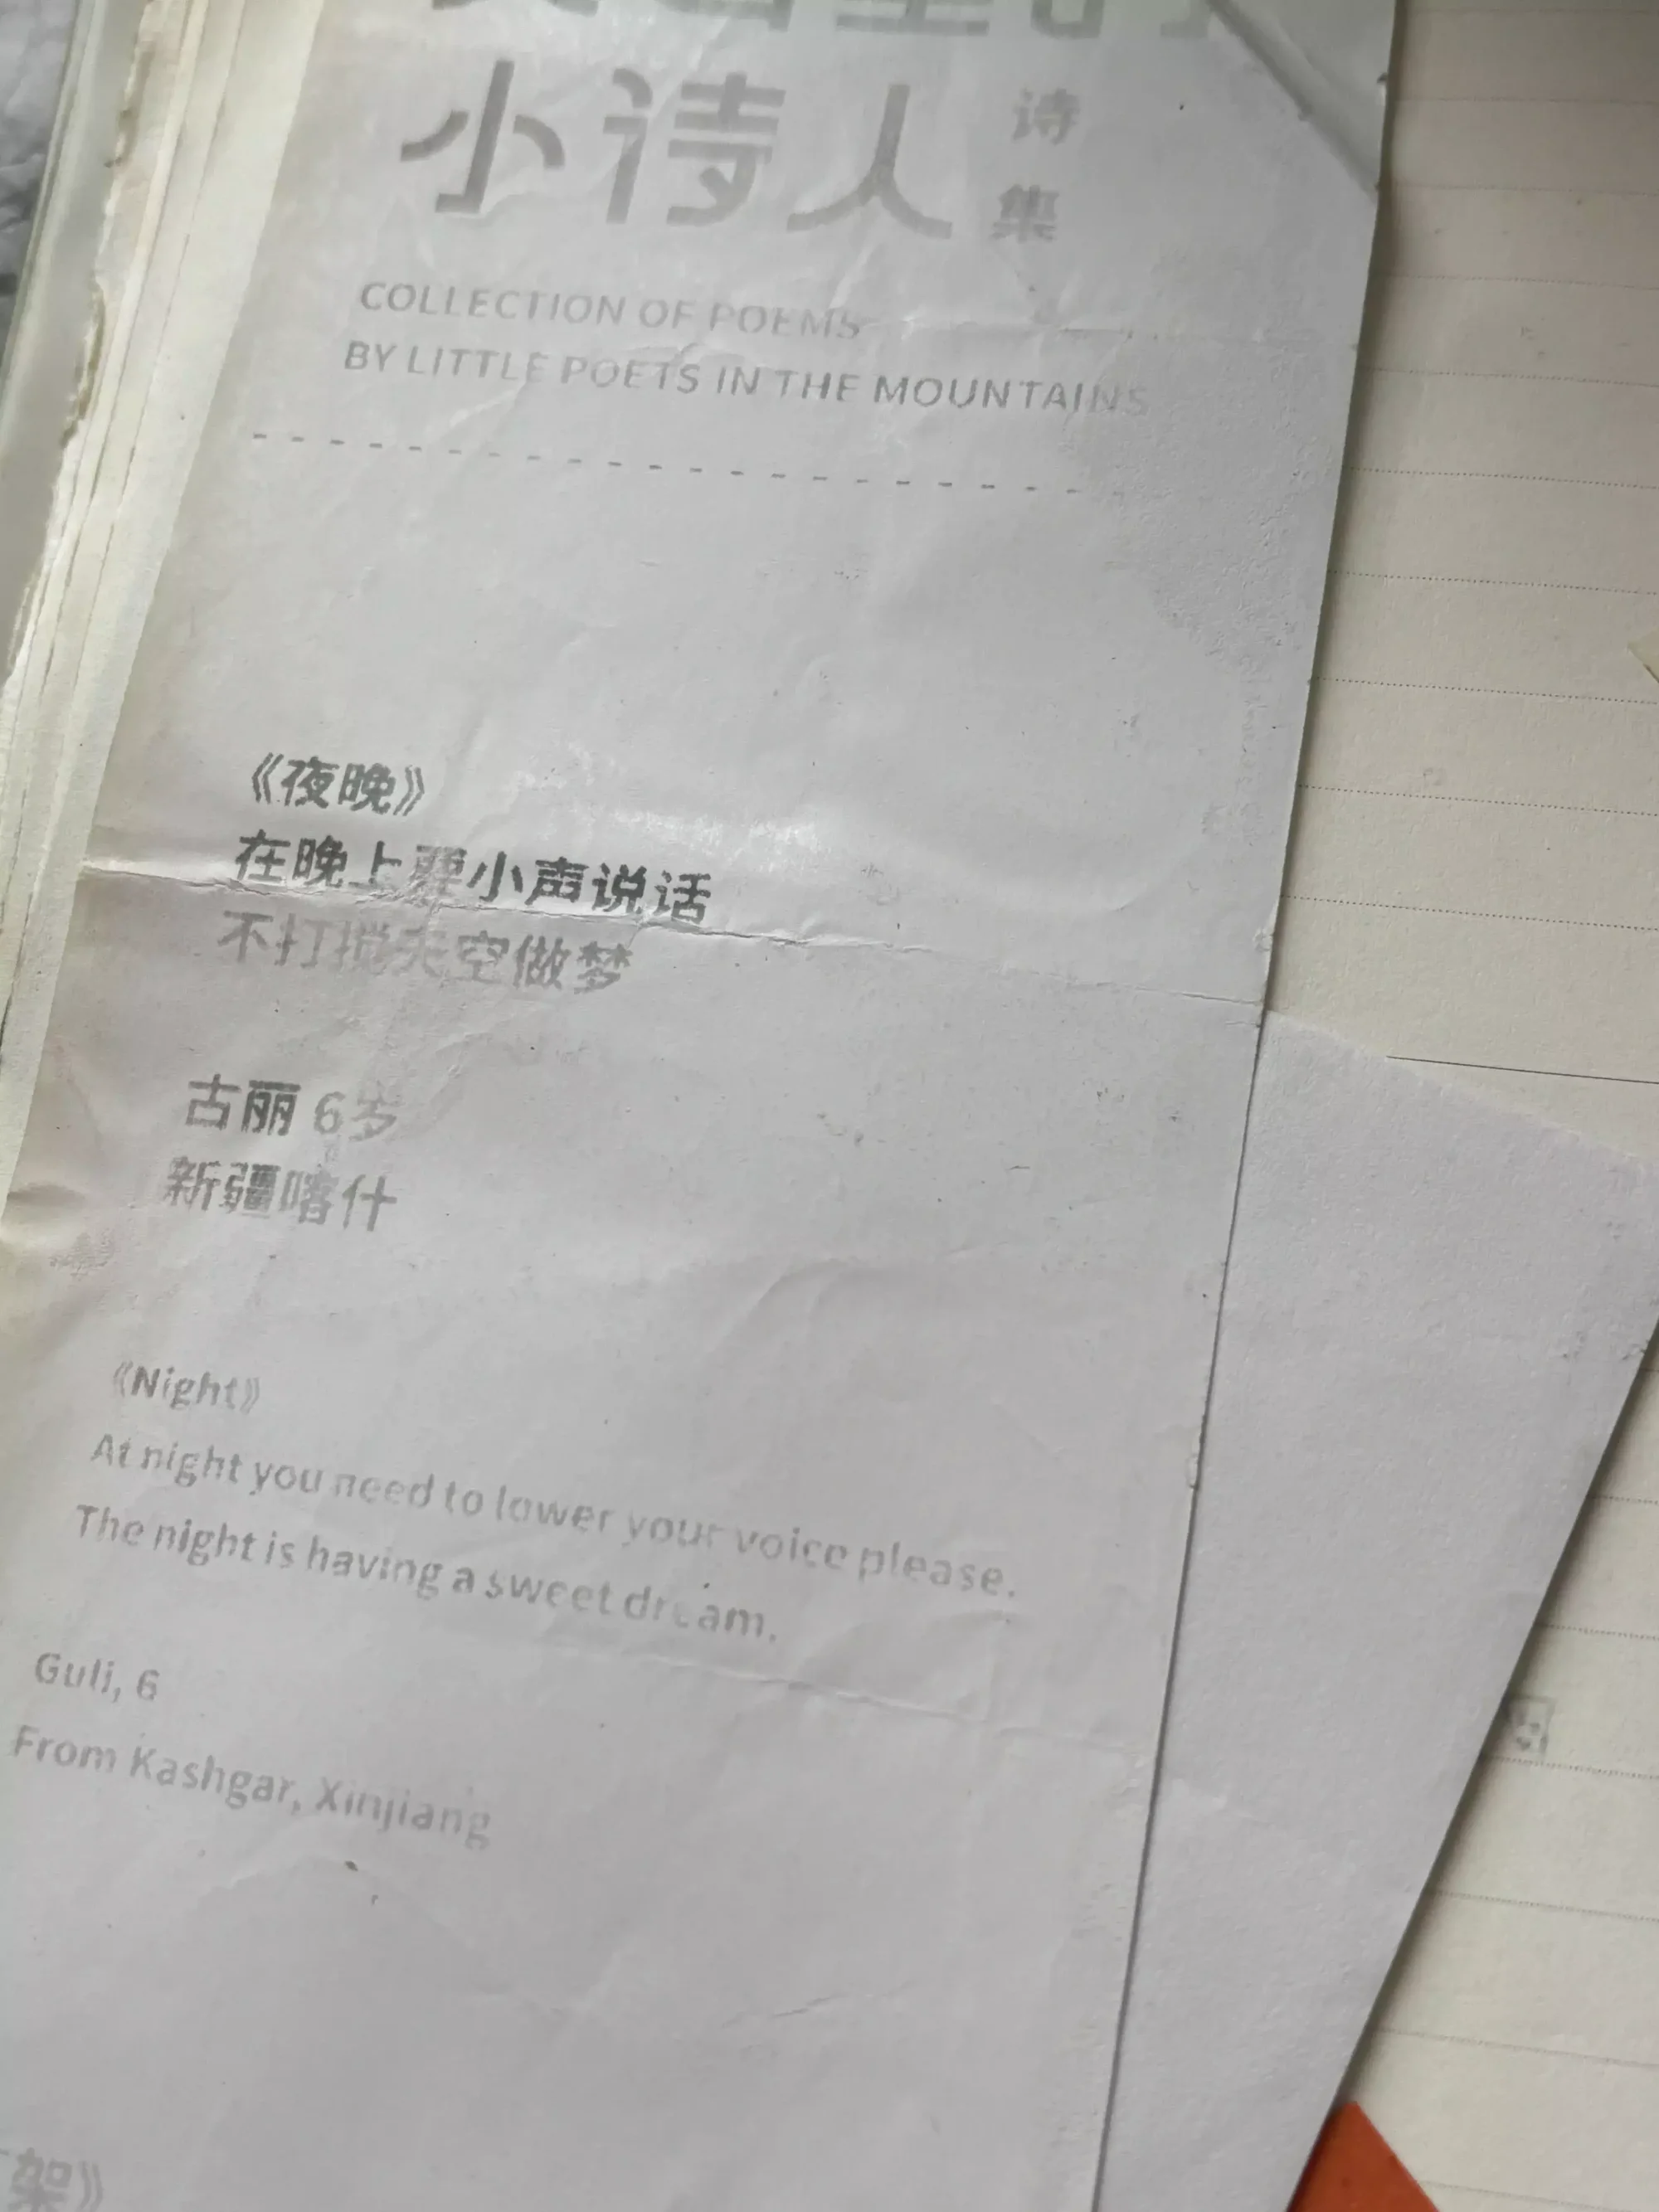 小诗人
诗集
COLLECTION OF POEMS
BY LITTLE POETS IN THE MOUNTAINS
《夜晚》
在晚上要小声说话
不打搅天空做梦
古丽 6岁
新疆喀什
《Night》
At night you need to lower your voice please.
The night is having a sweet dream.
Guli, 6
From Kashgar, Xinjiang
架》